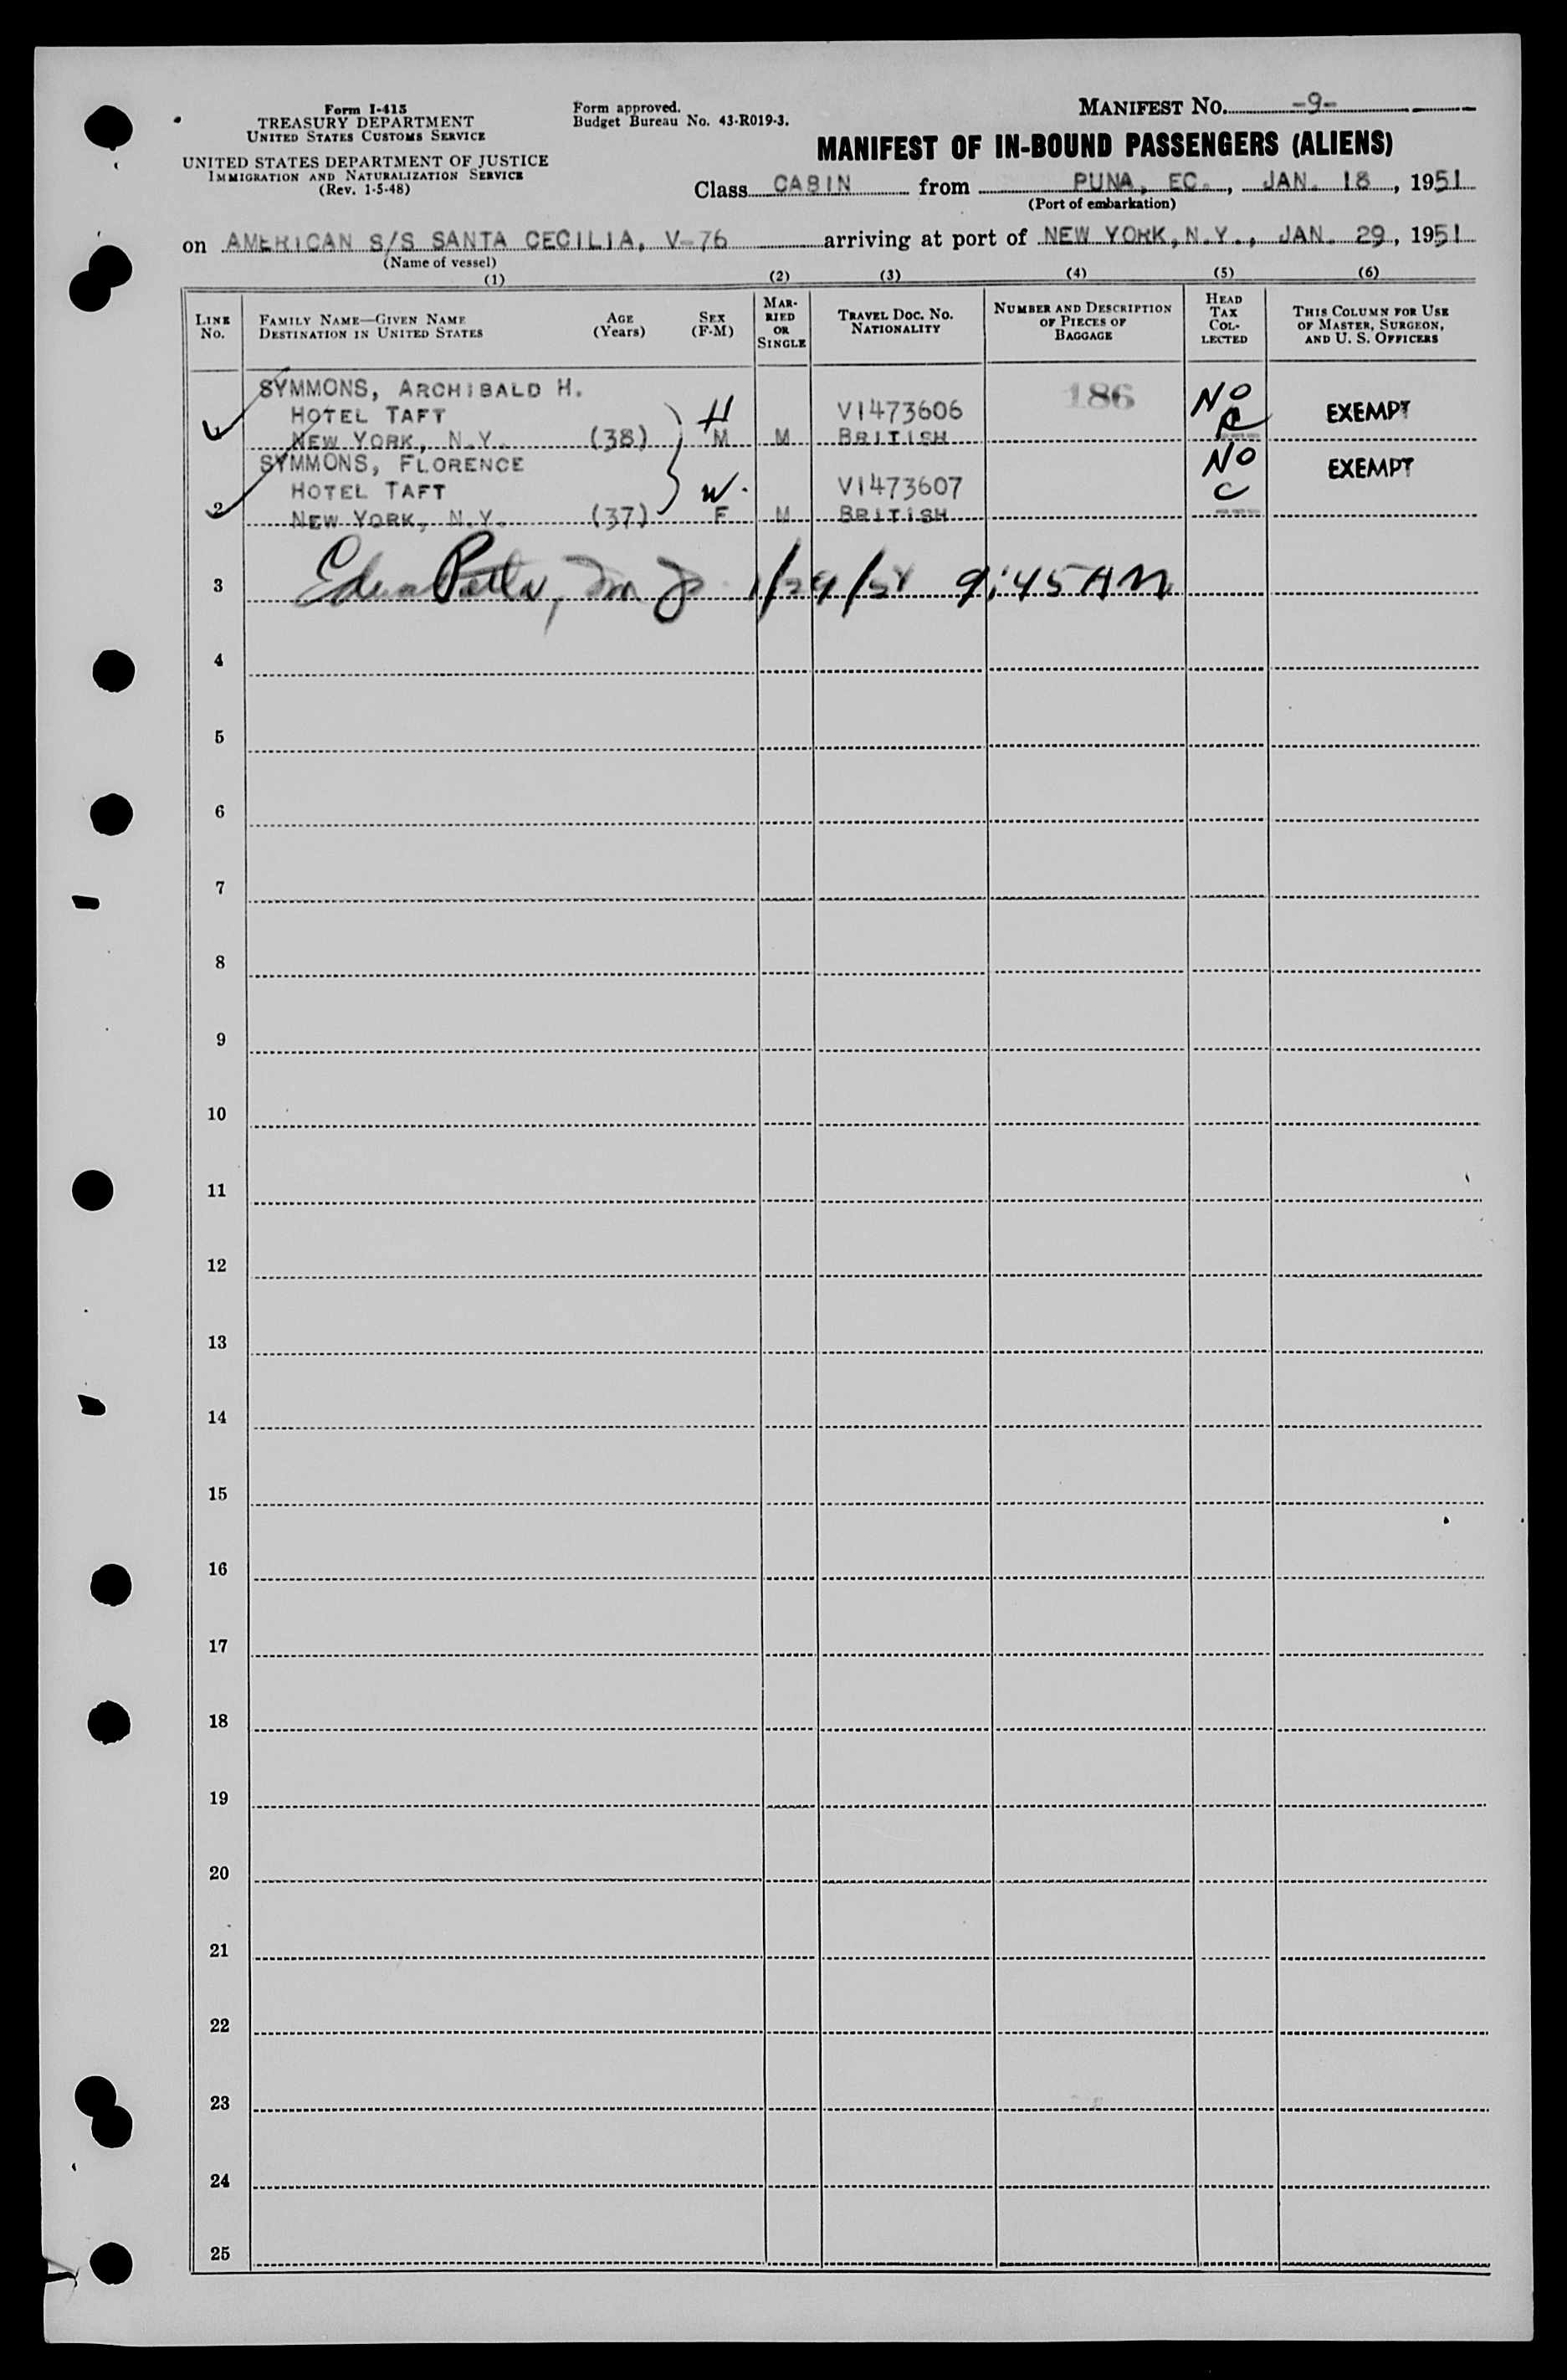 Form I-415
TREASURY DEPARTMENT
UNITED STATES CUSTOMS SERVICE
UNITED STATES DEPARTMENT OF JUSTICE
IMMIGRATION AND NATURALIZATION SERVICE
(Rev. 1-5-48)
Form approved.
Budget Bureau No. 43-R019-3.
MANIFEST NO. -9-
MANIFEST OF IN-BOUND PASSENGERS (ALIENS)
Class CABIN from PUNA, EC., JAN. 18, 1951
(Port of embarkation)
on AMERICAN S/S SANTA CECILIA, V-76 arriving at port of NEW YORK, N.Y., JAN. 29, 1951
(Name of vessel)
(1) (2) (3) (4) (5) (6)
LINE No.
FAMILY NAME—GIVEN NAME
DESTINATION IN UNITED STATES
AGE (Years)
SEX (F-M)
MARRIED OR SINGLE
TRAVEL DOC. NO.
NATIONALITY
NUMBER AND DESCRIPTION OF PIECES OF BAGGAGE
HEAD TAX COLLECTED
THIS COLUMN FOR USE OF MASTER, SURGEON, AND U. S. OFFICERS
SYMMONS, ARCHIBALD H. 186 NO
HOTEL TAFT H V1473606 EXEMPT
1 NEW YORK, N.Y. (38) M M BRITISH
SYMMONS, FLORENCE NO EXEMPT
HOTEL TAFT W. V1473607 C
2 NEW YORK, N.Y. (37) F M BRITISH
3 1/29/51 9:45 AM
4
5
6
7
8
9
10
11
12
13
14
15
16
17
18
19
20
21
22
23
24
25